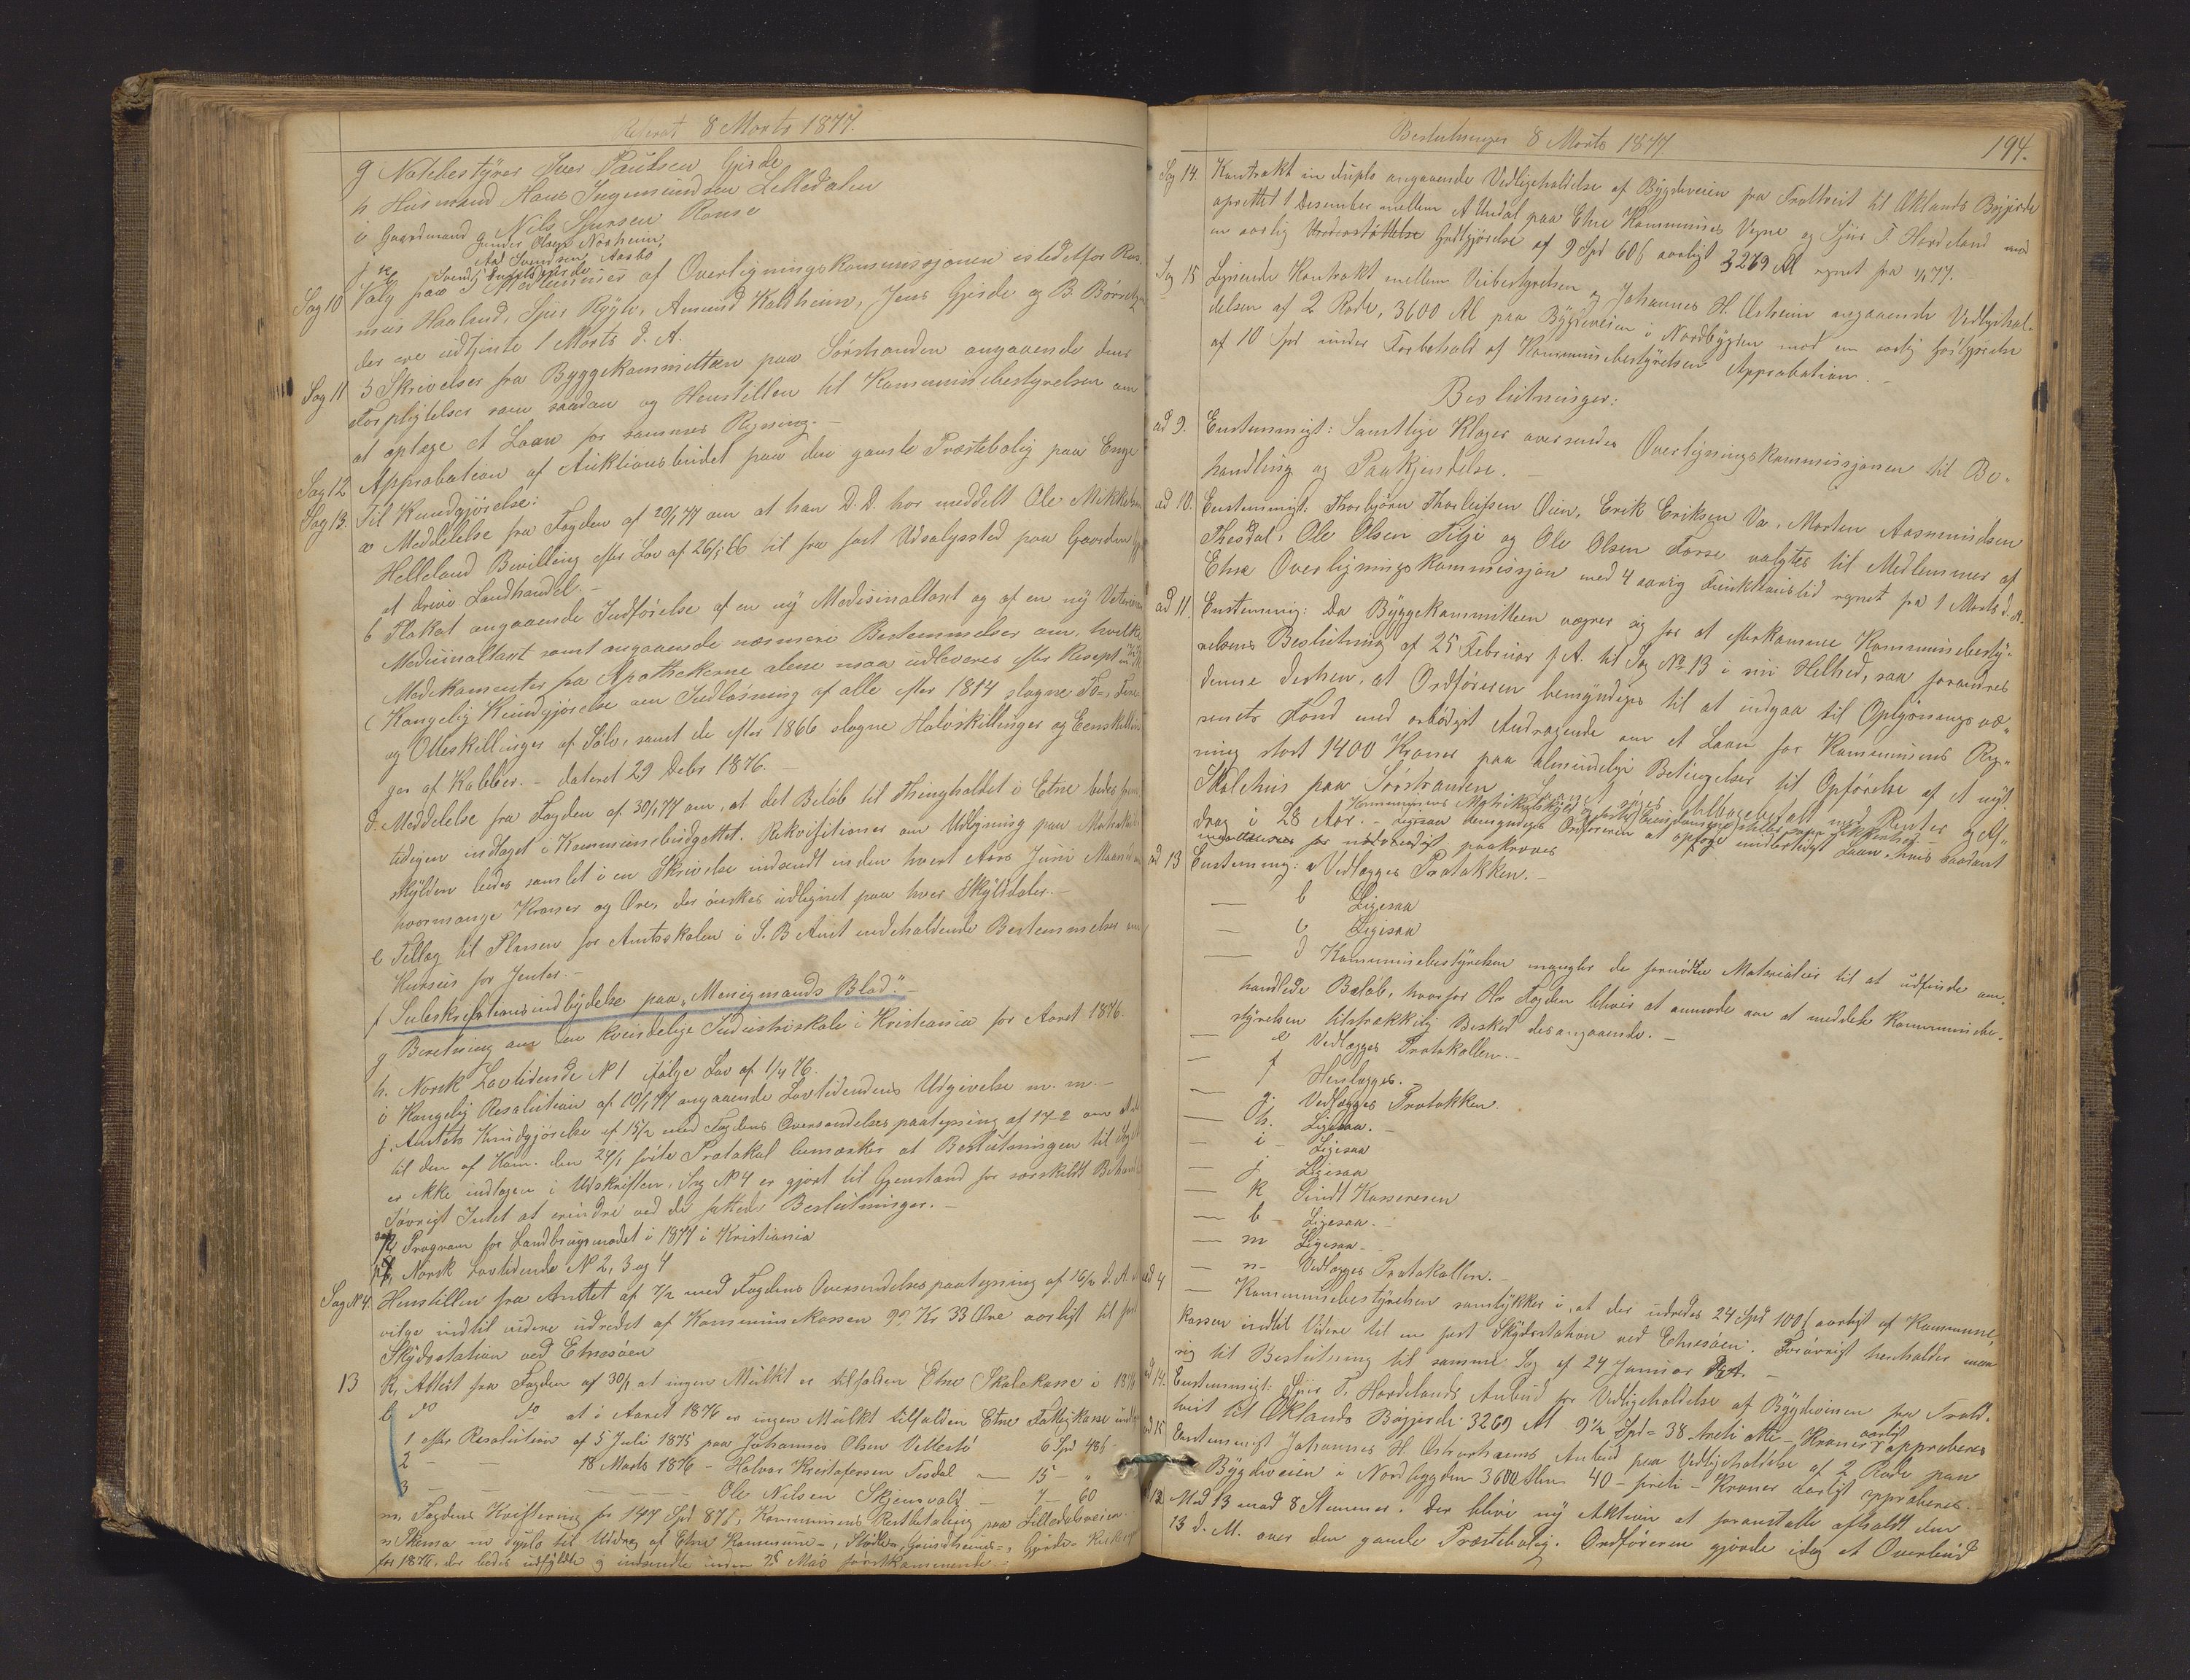 Referat 8 Marts 1877.
g Notebestyrer Iver Paulsen Gjerde
h Husmand Hans Ingemundsen Lilledalen
i Gaardmand Nils Sjursen Ranse
j Gunder Olsen Norheim,
Aad Svendsen Aasbø
Sag 10 Valg paa 5 Medlemmer af Overligningskommissjonen istedetfor Ras-
mus Haaland, Sjur Rygh, Amund Kaltheim, Jens Gjerde og B. Børretz
der ere udtjente 1 Marts d. A.
Sag 11 3 Skrivelser fra Byggekommitteen paa Sørstranden angaaende dens
Forpligtelser som saadan og Henstillen til Kommunebestyrelsen om
at optage et Laan for sammes Regning. -
Sag 12 Approbation af Auktionsbudet paa den gamle Præstebolig paa Enge
Sag 13. Til Kundgjørelse:
a Meddelelse fra Fogden af 20/1 77 om at han D. D. har meddelt Ole Mikkelsen
Helleland Bevilling efter Lov af 26/5 66 til fra fast Udsalgssted paa Gaarden
at drive Landhandel. -
b Plakat angaaende Indførelse af en ny Medisinaltaxt og af en ny Veterinær
Medicinaltaxt samt angaaende nærmere Bestemmelser om, hvilke
Medikamenter fra Apothekerne alene maa udleveres efter Resept
c Kongelig Kundgjørelse om Indløsning af alle efter 1814 slagne To-, Fire
og Otteskillinger af Sølv, samt de efter 1866 slagne Halvskillinger og Eenskillin
ger af Kobber. - dateret 29 Debr 1876. -
d Meddelelse fra Fogden af 30/1 77 om, at det Beløb til Thingholdet i Etne bedes
tidigen indtaget i Kommunebudgettet. Rekvisitioner om Udligning paa Matrikel
skylden bedes samlet i en Skrivelse indsendt inden hvert Aars Juni Maaned
hvormange Kroner og Øre, der ønskes udlignet paa hver Skylddaler. -
e Tillæg til Planen for Amtsskolen i S. B Amt indeholdende Bestemmelser om
Kursus for Jenter. -
f Subskriptionsindbydelse paa „Menigmands Blad". -
g Beretning om den kvindelige Industriskole i Kristiania for Aaret 1876.
h. Norsk Lovtidende No 1 ifølge Lov af 1/4 76.
i Kongelig Resolution af 10/1 77 angaaende Lovtidendens Udgivelse m. m. -
j. Amtets Kundgjørelse af 15/2 med Fogdens Oversendelsespaategning af 17-2 om at
til den af Kom. den 24/1 førte Protokol bemærkes at Beslutningen til Sag
er ikke indtagen i Udskriften. Sag No 4 er gjort til Gjenstand for særskildt Behand
Iøvrigt Intet at erindre ved de fattede Beslutninger. -
Program for Landbrugsmødet i 1877 i Kristiania
Norsk Lovtidende No 2, 3 og 4
Sag No 4. Henstillen fra Amtet af 7/2 med Fogdens Oversendelsespaategning af 15/2 d. A.
vilge indtil videre udredet af Kommunekassen 99 Kr 33 Øre aarligt til fast
Skydsstation ved Etnesøen
13 k, Attest fra Fogden af 30/1 at ingen Mulkt er tilfalden Etne Skolekasse i 1876
l do do at i Aaret 1876 er ingen Mulkt tilfalden Etne Fattigkasse
1 efter Resolution af 5 Juli 1875 paa Johannes Olsen Vettestø 6 Spd 48 ß
2 - - 18 Marts 1876 - Halvor Kristofersen Tesdal - 15 - "
3 - - - Ole Nilsen Skjensvold - 7 - 60
m Fogdens Kvittering for 147 Spd 87 ß, Kommunens Restbetaling paa Lilledalsveien
n Skema in duplo til Uddrag af Etne Kommune-,
for 1876, der bedes udfyldte og indsendte inden Mai førstkommende.
Beslutninger 8 Marts 1877 194.
Sag 14. Kontrakt in duplo angaaende Vedligeholdelse af Bygdeveien fra Troltveit til Øklands Bøigjerde
oprettet 1 Desember mellem A Undal paa Etne Kommunes Vegne og Sjur T. Hordeland mod
en aarlig Understøttelse Godtgjørelse af 9 Spd 60 ß aarligt 3269 Al regnet fra 1/1 77.
Sag 15 Lignende Kontrakt mellem Veibestyrelsen og Johannes H. Østreim angaaende Vedligehol-
delsen af 2 Rode, 3600 Al paa Bygdeveien i Nordbygden mod en aarlig Godtgjørelse
af 10 Spd under Forbehold af Kommunebestyrelsens Approbation. -
Beslutninger:
ad 9. Enstemmigt: Samtlige Klager oversendes Overligningskommissjonen til Be-
handling og Paakjendelse. -
ad 10. Enstemmigt: Thorbjørn Thorleifsen Øien, Erik Eriksen Va, Morten Aasmundsen
Thesdal, Ole Olsen Silje og Ole Olsen Tørse valgtes til Medlemmer af
Etne Overligningskommissjon med 4 aarig Funktionstid regnet fra 1 Marts d. A.
ad 11. Enstemmig: Da Byggekommitteen vægrer sig for at efterkomme Kommunebesty-
relsens Beslutning af 25 Februar f. A. til Sag No 13 i sin Helhed, saa forandres
denne derhen, at Ordføreren bemyndiges til at indgaa til Oplysningsvæ-
senets Fond med ærbødigst Andragende om et Laan for Kommunens Reg-
ning stort 1400 Kroner paa almindelige Betingelser til Opførelse af et nyt
Skolehus paa Sørstranden Laanet søges tilbagebetalt med Renter og Af-
drag i 28 Aar. - Kommunens Matrikelskyld og faste Eiendomme stilles som Sikkerhed.
Ligesaa bemyndiges Ordføreren at optage midlertidigt Laan, hvis saadant
imellemtiden for nødvendigt paakræves
ad 13 Enstemmig: a Vedlægges Protokken. -
— b Ligesaa
— c Ligesaa
— d Kommunebestyrelsen mangler de fornødne Materialier til at udfinde om-
handlede Beløb, hvorfor Hr Fogden bliver at anmode om at meddele Kommunebe-
styrelsen tilstrækkelig Besked desangaaende. -
— e Vedlægges Protokollen. -
— f Henlægges. -
— g. Vedlægges Protokken.
— h. Ligesaa. -
— i - Ligesaa
— j Ligesaa
— k Sendt Kassereren
— l - Ligesaa. -
— m Ligesaa -
— n - Vedlægges Protokollen. -
ad 4 — Kommunebestyrelsen samtykker i, at der udredes 24 Spd 100 ß aarligt af Kommune-
kassen indtil Videre til en fast Skydsstation ved Etnesøen. Forøvrigt henholder man
sig til Beslutning til samme Sag af 24 Januar d. A. -
ad 14. Enstemmigt: Sjur T. Hordelands Anbud for Vedligeholdelse af Bygdeveien fra Trold-
tveit til Øklands Bøigjerde 3269 Al 9 1/2 Spd = 38 - treti otte - Kroner aarligt approberes
ad 15 Enstemmigt Johannes H. Østreheims Anbud paa Vedligeholdelse af 2 Rode paa
Bygdeveien i Nordbygden 3600 Alen 40 - firti - Kroner aarligt approberes. -
ad 12 Med 13 mod 8 Stemmer: Der bliver ny Auktion at foranstalte afholdt den
13 d. M. over den gamle Præstebolig. Ordføreren gjorde idag et Overbud